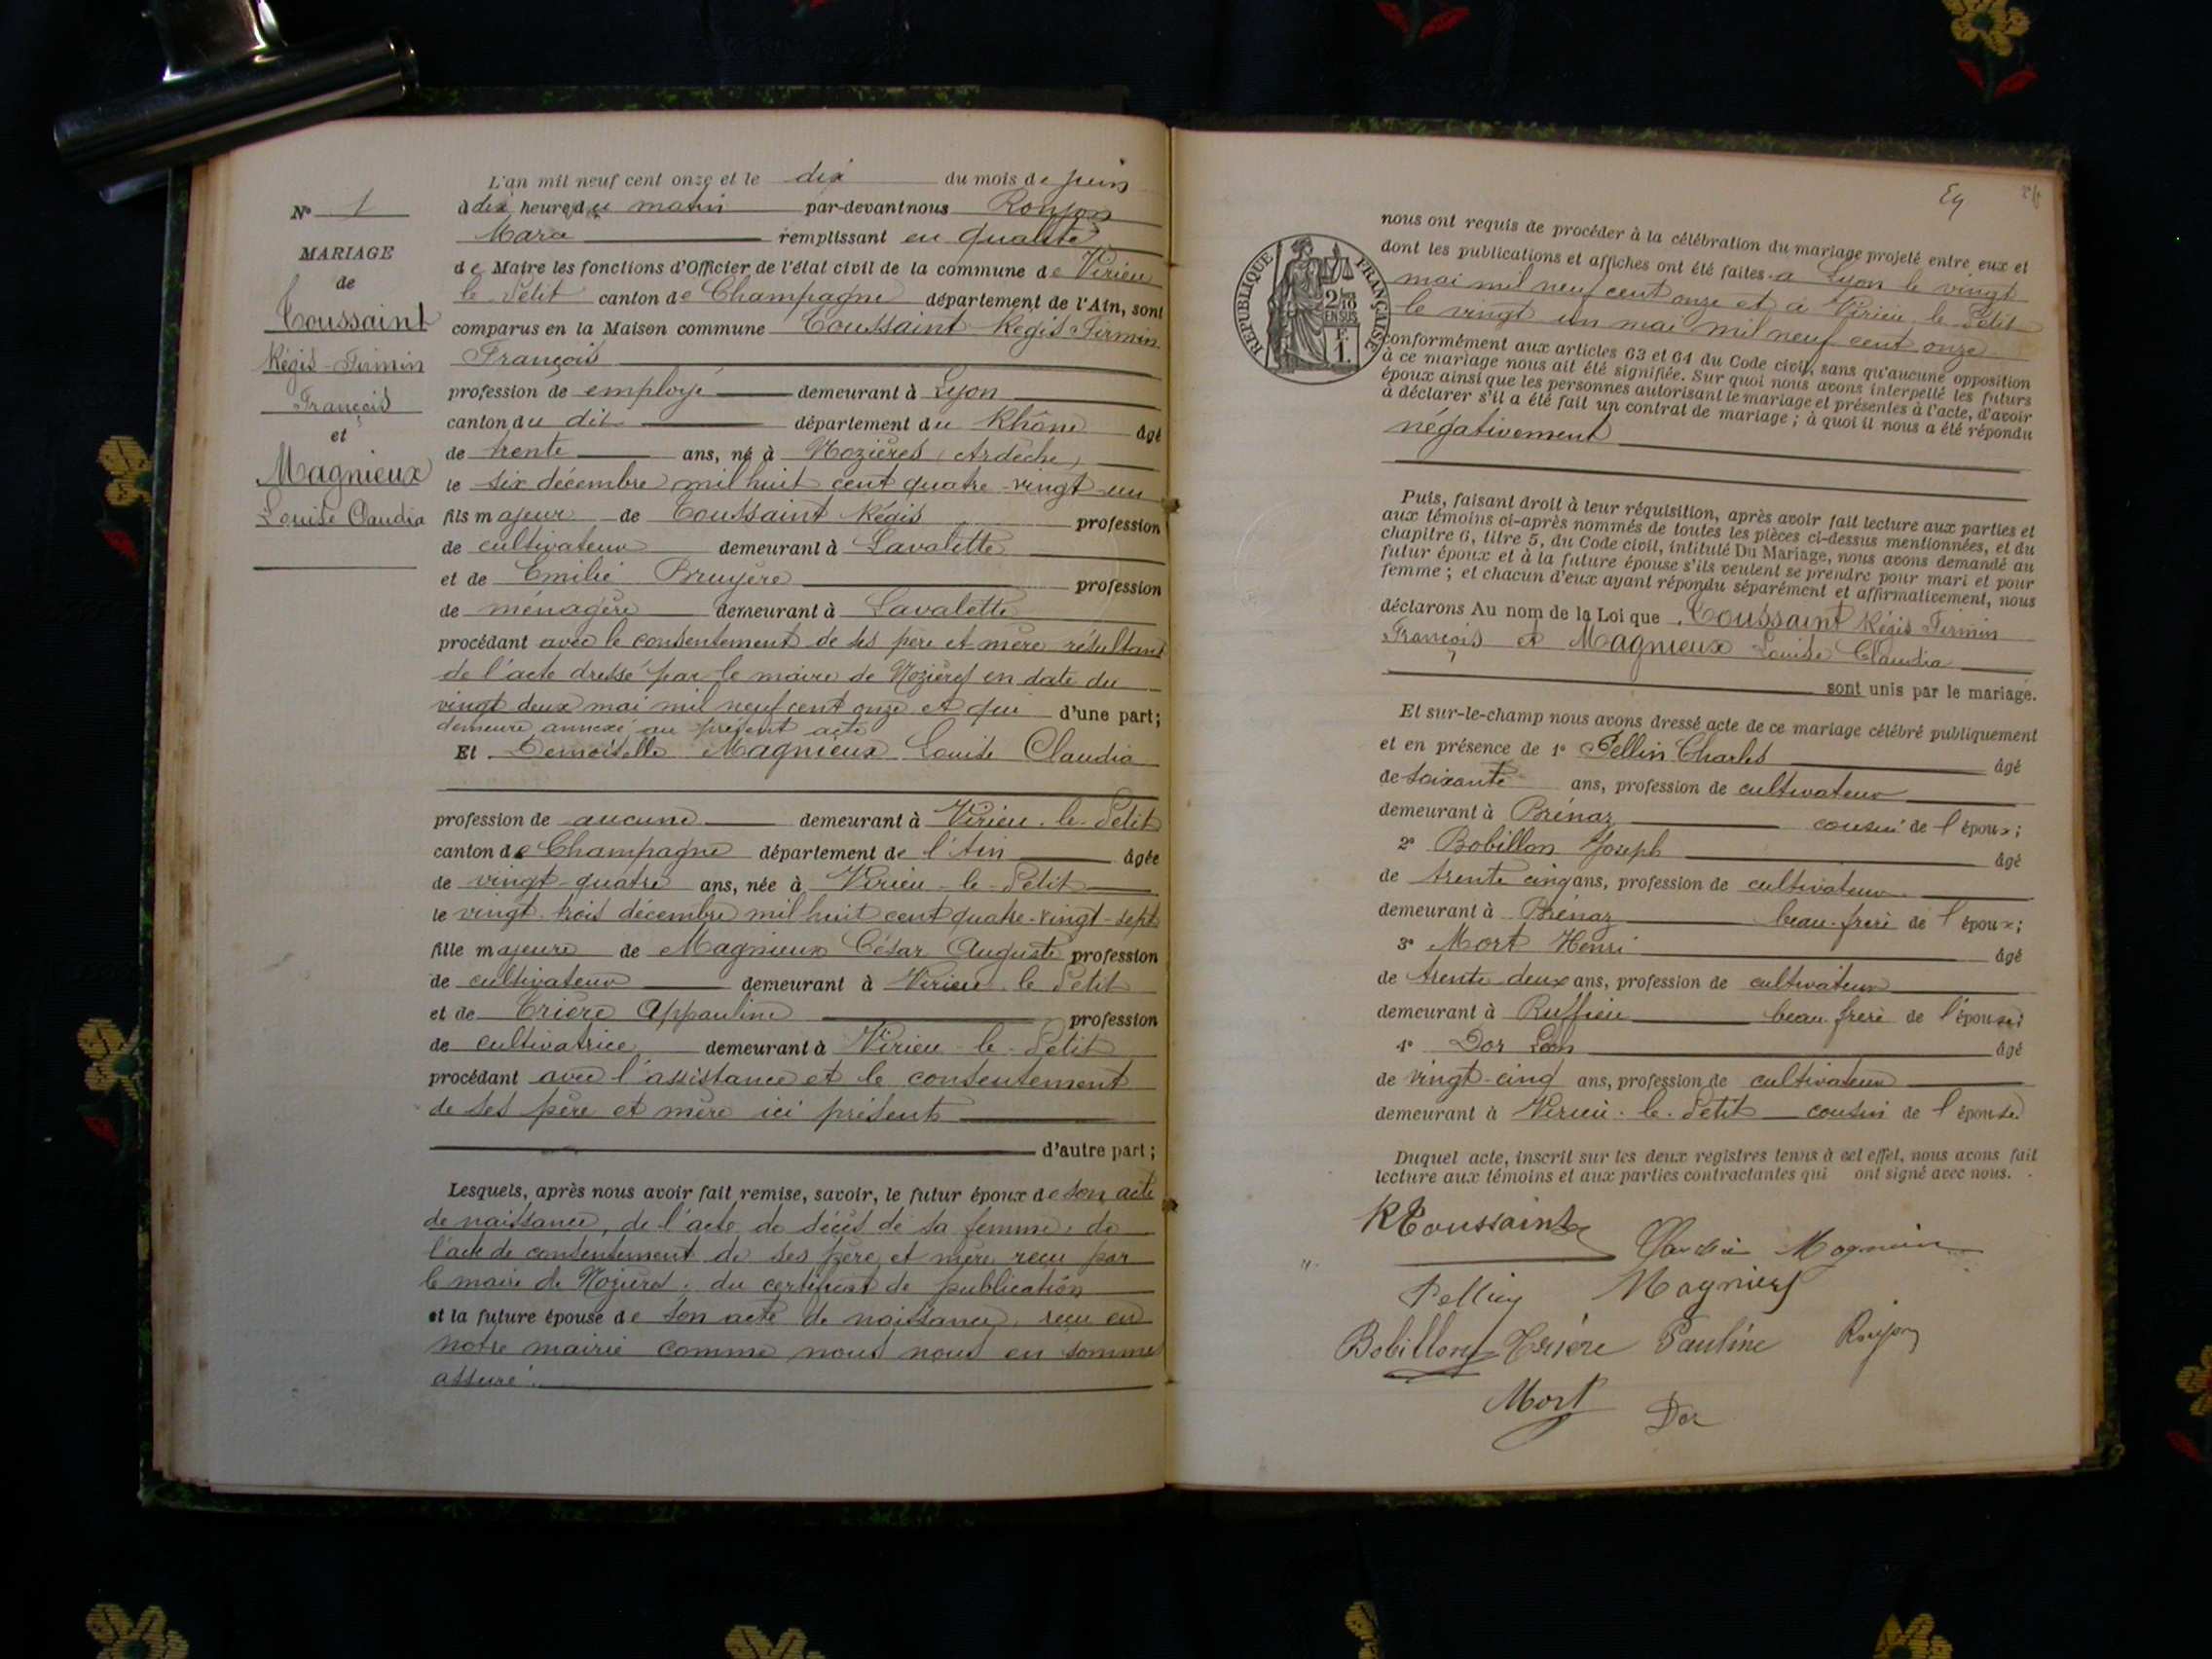 N° 1
MARIAGE
de
Toussaint
Régis-Firmin
François
et
Magnieux
Louise Claudia
L'an mil neuf cent onze et le dix du mois de juin
à dix heures du matin par-devant nous Ronjon
Marc remplissant en qualité
de Maire les fonctions d'Officier de l'état civil de la commune de Virieu
le Petit canton de Champagne département de l'Ain, sont
comparus en la Maison commune Toussaint Régis Firmin
François
profession de employé demeurant à Lyon
canton du dit département du Rhône âgé
de trente ans, né à Nozières (Ardèche)
le six décembre mil huit cent quatre-vingt-un
fils majeur de Toussaint Régis profession
de cultivateur demeurant à Lavalette
et de Emilie Bruyère profession
de ménagère demeurant à Lavalette
procédant avec le consentement de ses père et mère résultant
de l'acte dressé par le maire de Nozières en date du
vingt deux mai mil neuf cent onze et qui d'une part;
demeure annexé au présent acte
Et Demoiselle Magnieux Louise Claudia
profession de aucune demeurant à Virieu-le-Petit
canton de Champagne département de l'Ain âgée
de vingt-quatre ans, née à Virieu-le-Petit
le vingt-trois décembre mil huit cent quatre-vingt-sept
fille majeure de Magnieux César Auguste profession
de cultivateur demeurant à Virieu le Petit
et de Trière Appauline profession
de cultivatrice demeurant à Virieu-le-Petit
procédant avec l'assistance et le consentement
de ses père et mère ici présents
d'autre part;
Lesquels, après nous avoir fait remise, savoir, le futur époux de son acte
de naissance, de l'acte de décès de sa femme, de
l'acte de consentement de ses père et mère reçu par
le maire de Nozières, du certificat de publication
et la future épouse de son acte de naissance reçu en
notre mairie comme nous nous en sommes
assuré.
E4
RÉPUBLIQUE FRANÇAISE
2/10
EN SUS
F.
1.
nous ont requis de procéder à la célébration du mariage projeté entre eux et
dont les publications et affiches ont été faites à Lyon le vingt
mai mil neuf cent onze et à Virieu le Petit
le vingt un mai mil neuf cent onze
conformément aux articles 63 et 64 du Code civil, sans qu'aucune opposition
à ce mariage nous ait été signifiée. Sur quoi nous avons interpellé les futurs
époux ainsi que les personnes autorisant le mariage et présentes à l'acte, d'avoir
à déclarer s'il a été fait un contrat de mariage; à quoi il nous a été répondu
négativement
Puis, faisant droit à leur réquisition, après avoir fait lecture aux parties et
aux témoins ci-après nommés de toutes les pièces ci-dessus mentionnées, et du
chapitre 6, titre 5, du Code civil, intitulé Du Mariage, nous avons demandé au
futur époux et à la future épouse s'ils veulent se prendre pour mari et pour
femme; et chacun d'eux ayant répondu séparément et affirmativement, nous
déclarons Au nom de la Loi que Toussaint Régis Firmin
François et Magnieux Louise Claudia
sont unis par le mariage.
Et sur-le-champ nous avons dressé acte de ce mariage célébré publiquement
et en présence de 1° Pellin Charles âgé
de soixante ans, profession de cultivateur
demeurant à Brénaz cousin de l'époux;
2° Bobillon Joseph âgé
de trente cinq ans, profession de cultivateur
demeurant à Brénaz beau-frère de l'époux;
3° Mort Henri âgé
de trente deux ans, profession de cultivateur
demeurant à Ruffieu beau-frère de l'épouse;
4° Dor Léon âgé
de vingt-cinq ans, profession de cultivateur
demeurant à Virieu-le-Petit cousin de l'épouse
Duquel acte, inscrit sur les deux registres tenus à cet effet, nous avons fait
lecture aux témoins et aux parties contractantes qui ont signé avec nous.
R Toussaint
Claudia Magnieux
Pellin Magnieux
Bobillon Trière Pauline Ronjon
Mort Dor